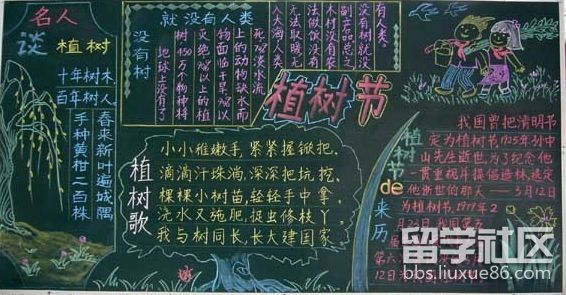 名人
谈植树
十年树木，
百年树人
手种黄柑二百株
春来新叶遍城隅
没有树
就没有人类
地球上没有了
树450万个物种将
灭绝90%以上的植
物面临干旱90%以
上的动物缺水而
死70%淡水流
入大海人类
无法取暖无
法做饭没有
木材没有农
副产品总之
没有树就没
有人类。
植树节
植树歌
小小稚嫩手，紧紧握锨把，
滴滴汗珠淌，深深把坑挖，
棵棵小树苗，轻轻手中拿，
浇水又施肥，捉虫修枝丫，
我与树同长，长大建国家
植树节de来历
我国曾把清明节
定为植树节1925年孙中
山先生逝世，为了纪念他
一贯重视并提倡造林，规定
他逝世的那天——3月12日
为植树节，1979年2
月23日，我国第五
届
第六次
12日
留学社区
bbs.liuxue86.com